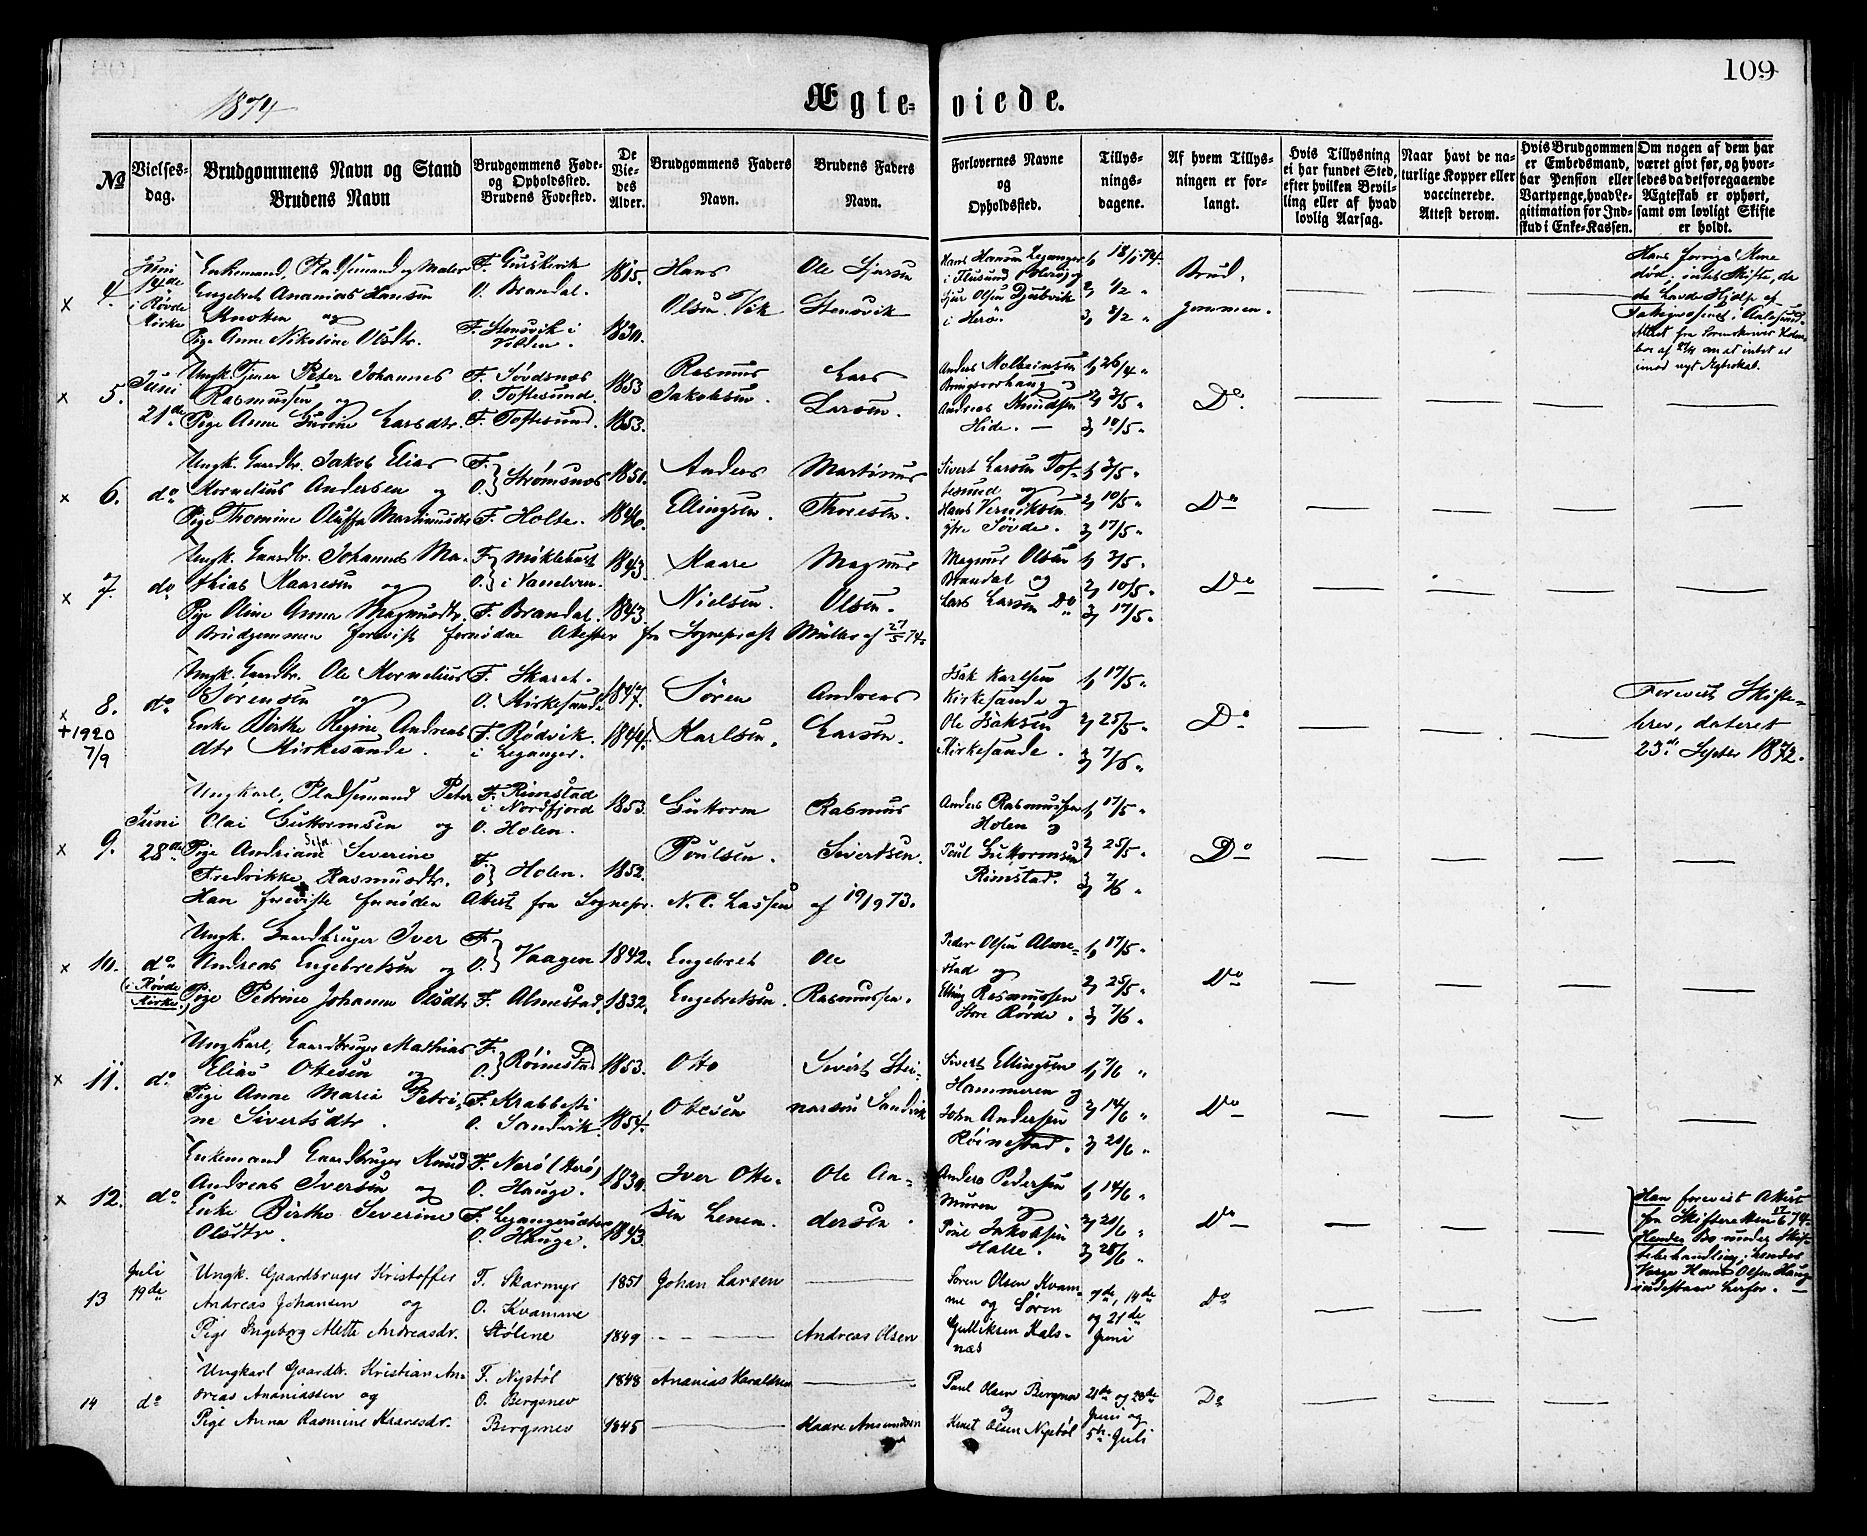 109
1874
Ægteviede.
№
Vielses-
dag.
Brudgommens Navn og Stand
Brudens Navn
Brudgommens Føde-
og Opholdssted.
Brudens Fødested.
De
Vie-
des
Alder.
Brudgommens Faders
Navn.
Brudens Faders
Navn.
Forlovernes Navne
og
Opholdssted.
Tillys-
nings-
dagene.
Af hvem Tillys-
ningen er for-
langt.
Hvis Tillysning
ei har fundet Sted,
efter hvilken Bevil-
ling eller af hvad
lovlig Aarsag.
Naar havt de na-
turlige Kopper eller
vaccinerede.
Attest derom.
Hvis Brudgommen
er Embedsmand,
har Pension eller
Vartpenge, hvad Le-
gitimation for Ind-
skud i Enke-Kassen.
Om nogen af dem har
været givt før, og hvor-
ledes da det foregaaende
Ægteskab er ophørt,
samt om lovligt Skifte
er holdt.
x 4. Juni 14de i Røvde Kirke
Enkemand, Pladsemand og Maler
Engebret Ananias Hansen
Knotten og
Pige Anne Nikoline Olsdtr.
F. Gurskevik
O. Brandal.
F. Stensvik i
Volden.
1815.
1830.
Hans
Olsen Vik
Ole Sjursen
Stensvik
Hans Hansen Leganger
i Flusund Herø og
Sjur Olsen Djubvik
i Herø.
1) 18/1 74.
2) 1/2 "
3) 8/2 "
Brud-
gommen.
Hans forrige Kone
død. intet Skifte, da
de havde Hjælp af
x 5. Juni 21de
Ungk. Tjener Peter Johannes
Rasmussen og
Pige Anne Gurine Larsdtr.
F. Søvdsnæs
O. Toftesund.
F. Toftesund.
1853
1853.
Rasmus
Jakobsen.
Lars
Larsen.
Andreas Knudsen
Hide.
1) 26/4 "
2) 3/5 "
3) 10/5 "
Do.
x 6. do
Ungk. Gaardbr. Jakob Elias
Kornelius Andersen og
Pige Thomine Oluffa Martinusdtr
F.
O. Strømsnæs
F. Holte.
1850.
1846.
Anders
Ellingsen.
Martinus
Thoresen.
Sivert Larsen Tof-
tesund og
Søvde.
1) 3/5 "
2) 10/5 "
3) 17/5 "
Do
x 7. do
Ungk. Gaardbr. Johannes Ma-
thias Kaaresen og
Pige Oline Anna Magnusdtr.
F. Møklebust
O. i Vanelven.
F. Brandal.
1843.
1843
Kaare
Nielsen.
Magnus
Olsen.
Magnus Olsen
Brandal og
Lars Larsen Do
1) 3/5 "
2) 10/5 "
3) 17/5 "
Do
Brudgommen foreviste fornødne Attester fra Sogneprest Müller af 27/5 74.
x 8. do
+1920
7/9
Ungk. Gaardbr. Ole Kornelius
Sørensen og
Enke Birthe Regine Andreas
dtr Kirkesande.
F. Skaret.
O. Kirkesande
F. Rødvik.
i Leganger.
1847.
1844.
Søren
Karlsen.
Andreas
Larsen.
Isak Karlsen
Kirkesande og
Ole Isaksen
Kirkesande.
1) 17/5 "
2) 25/5 "
3) 7/6 "
Do
Forevist Skifte-
brev, dateret
23de Septbr 1872.
x 9. Juni 28de
Ungkarl, Pladsemand Peter
Olai Guttormsen og
Pige Andriane Severine
Fredrikke Rasmusdtr.
F. Rimstad
i Nordfjord
O. Holen.
F.
O. Holen.
1853.
1852.
Guttorm
Poulsen.
Rasmus
Sivertsen.
Anders Rasmussen
Holen og
Poul Guttormsen
Rimstad.
1) 17/5 "
2) 25/5 "
3) 7/6 "
Do
Han foreviste fornøden Attest fra Sognepr. N. C. Lassen af 19/9 73.
x 10. do i Røvde Kirke
Ungk. Gaardbruger Iver
Andreas Engebretsen og
Pige Petrine Johanna Olsdtr
F.
O. Vaagen
F. Almestad.
1842.
1832.
Engebret
Engebretsen.
Ole
Rasmussen.
Peder Olsen Alme-
stad og
Elling Rasmussen
Store Røvde.
1) 17/5 "
2) 25/5 "
3) 7/6 "
Do
x 11. do
Ungkarl, Gaardbruger Mathias
Elias Ottesen og
Pige Anne Marie Petri-
ne Sivertsdtr.
F.
O. Røinestad
F. Krabbesti
O. Sandvik.
1853.
1854.
Otto
Ottesen
Sivert Stei-
narsen Sandvik
Sivert Ellingsen
Hammeren og
John Andersen
Røinestad.
1) 7/6 "
2) 14/6 "
3) 21/6 "
Do
x 12. do
Enkemand Gaardbruger Knud
Andreas Iversen og
Enke Birthe Severine
Olsdtr.
F. Nerø (Herø)
O. Hauge.
F. Legangersæter
O. Hauge.
1830.
1843.
Iver Otte-
sen Lenen.
Ole An-
dersen.
Anders Pedersen
Muren og
Poul Jakobsen
Halle.
1) 14/6 "
2) 21/6 "
3) 28/6 "
Do
Han forevist Attest
fra Skifteretten 17/6 74.
Hendes Bo under Skif-
tebehandling; hendes
Verge Hans Olsen Haug
indestaar herfor.
13 Juli 19de
Ungk. Gaardbruger Kristoffer
Andreas Johansen og
Pige Ingeborg Alette Andreasdr.
F. Skarmyr
O. Kvamme
Stølene
1851
1849
Johan Larsen
Andreas Olsen
Søren Olsen Kvam-
me og Søren
Gulliksen Kals-
næs
7de, 14de
og 21de
Juni
Do
14 do
Ungkarl Gaardbr. Kristian An-
dreas Ananiassen og
Pige Anna Rasmine Kaaresdr.
F. Nystøl
O. Bergsnev
Bergsnev
1848
1845
Ananias Haraldsen
Kaare Amundsen
Paul Olsen Bergsnev
og
Knut Olsen Nystøl
21de og 28de
Juni og
5te Juli
Do